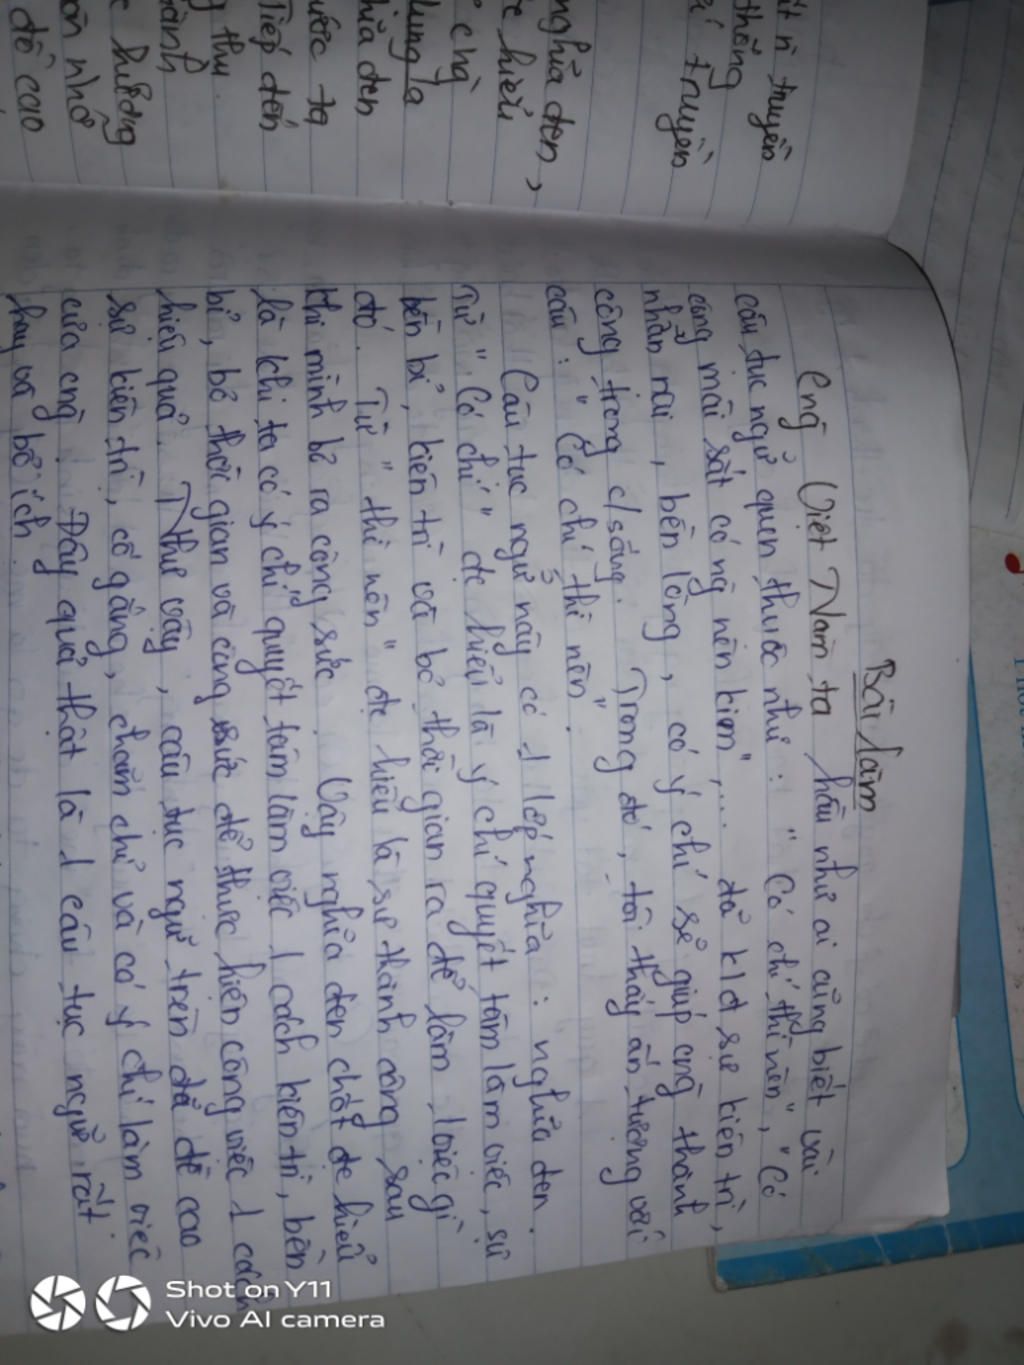 Bài làm
cng Việt Nam ta hầu như ai cũng biết vài
câu tục ngữ quen thuộc như: "Có chí thì nên", "Có
công mài sắt có ng nên kim",... đã k/đ sự kiên trì,
nhẫn nại, bền lòng, có ý chí sẽ giúp cng thành
công trong c/sống. Trong đó, tôi thấy ấn tượng với
câu: "Có chí thì nên".
Câu tục ngữ này có 1 lớp nghĩa: nghĩa đen.
Từ "Có chí" đc hiểu là ý chí quyết tâm làm việc, sự
bền bỉ, kiên trì và bỏ thời gian ra để làm 1 việc gì
đó. Từ "thì nên" đc hiểu là sự thành công sau
khi mình bỏ ra công sức. Vậy nghĩa đen chốt đc hiểu
là khi ta có ý chí quyết tâm làm việc 1 cách kiên trì, bền
bỉ, bỏ thời gian và công sức để thực hiện công việc 1 cách
hiệu quả. Như vậy, câu tục ngữ trên đã đề cao
sự kiên trì, cố gắng, chăm chỉ và có ý chí làm việc
của cng. Đây quả thật là 1 câu tục ngữ rất
hay và bổ ích.
ít nì truyền
thống
truyền
nghĩa đen,
hiểu
chỉ
dung la
đen
ước ta
Tiếp đến
thu
hướng
nhờ
đề cao
Shot on Y11
Vivo AI camera